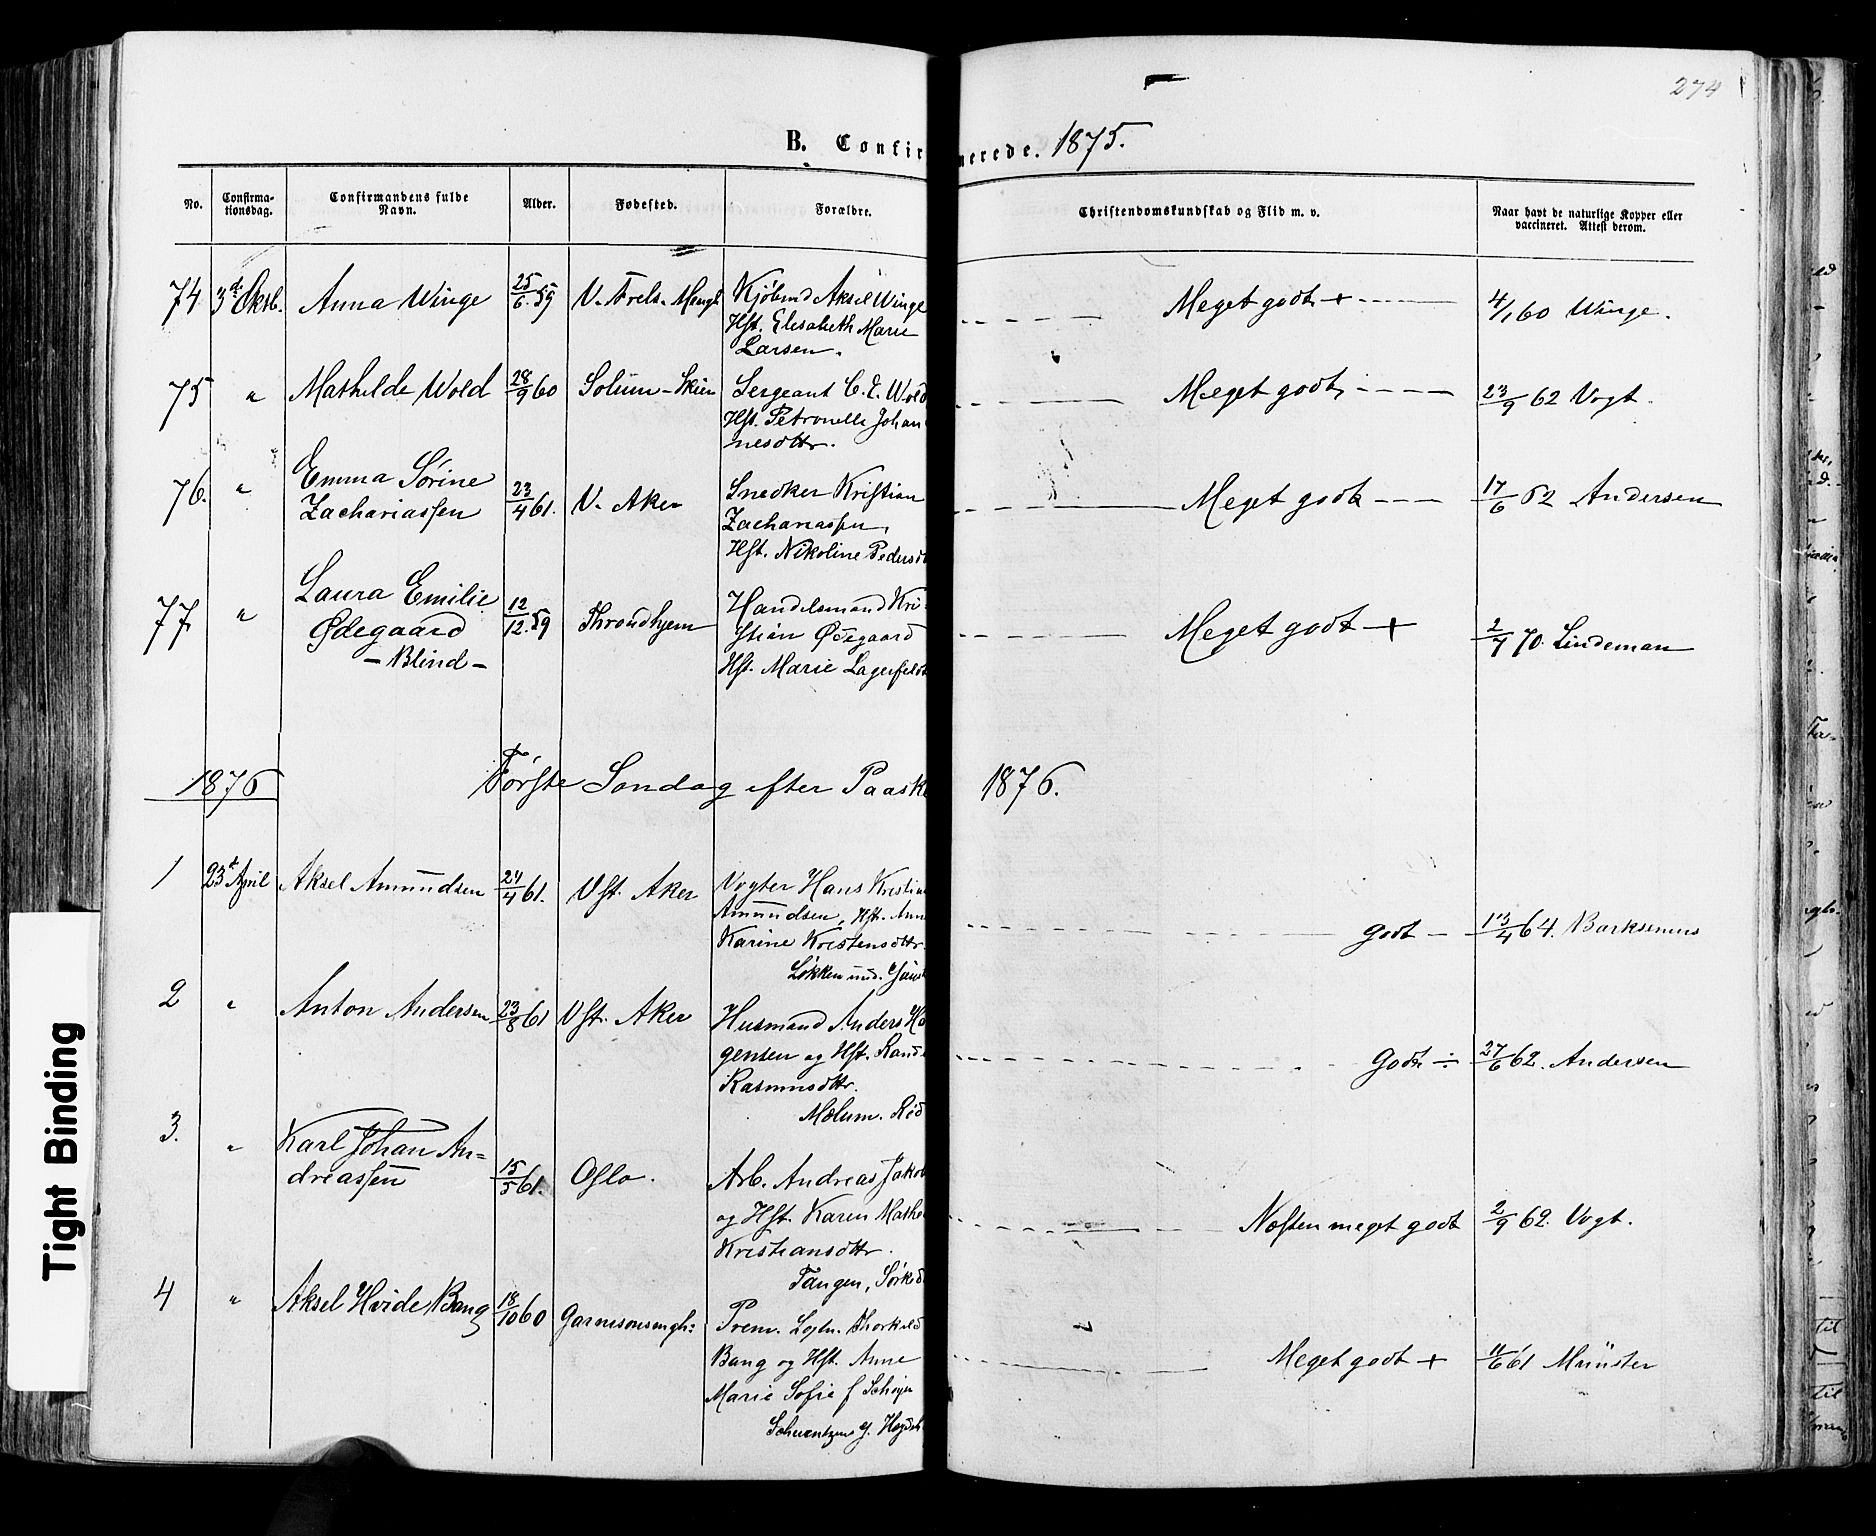 274
B. Confir
merede. 1875.
No.
Confirma-
tionsdag.
Confirmandens fulde
Navn.
Alder.
Fødested.
Forældre.
Christendomskundskab og Flid m. v.
Naar havt de naturlige Kopper eller
vaccineret. Attest derom.
74 3d Oktb. Anna Winge 25/6 59 V. Frels. Mengh Kjøbmd Aksel Winge
Hst. Elisabeth Marie
Larsen.
Meget godt + 4/1 60 Winge.
75 " Mathilde Wold 28/9 60 Solum - Skien Sergeant C. E. Wold
Hst. Petronelle Johan
nesdttr.
Meget godt 23/9 62 Vogt.
76. " Emma Sørine
Zachariassen 23/4 61. V. Aker Snedker Kristian
Zachariassen
Hst. Nikoline Pedersd
Meget godt 17/6 62 Andersen
77. " Laura Emilie
Ødegaard
- Blind - 12/12 59 Throndhjem Handelsmand Kri-
stian Ødegaard
Hst. Marie Lagerfeldt
Meget godt + 2/4 70. Lindeman
1876 Første Søndag efter Paaske 1876.
1 23d April Aksel Amundsen 24/4 61. Vst. Aker Vogter Hans Kristian
Amundsen, Hst. Anne
Karine Kristensdttr.
Løkken und.
godt 13/4 64.
2 " Anton Andersen 23/8 61 Vst. Aker Husmand Anders Ha
gensen og Hst. Rand
Rasmusdttr.
Mælum. Rød
Godt ÷ 27/6 62. Andersen
3. " Karl Johan An=
dreassen 15/5 61. Oslo. Arb. Andreas Jakob
og Hst. Karen Mathe
Kristiansdttr.
Tangen, Sørked
Næsten meget godt 2/9 62. Vogt.
4 " Aksel Hvide Bang 18/10 60 Garnisonsmgh: Prem. Lojtn. Thorkild
Bang og Hst. Anne
Marie Sofie f
Schwentzens g. Hegdeh
Meget godt + 11/6 61 Münster
Tight Binding